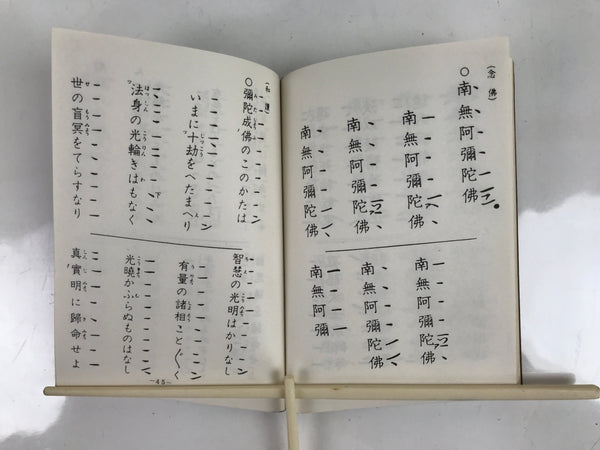 (念佛)
○南無阿彌陀佛
南無阿彌陀佛
南無阿彌陀佛
南無阿彌陀佛
南無阿彌陀佛
南無阿彌陀佛
南無阿彌
(和讃)
○彌陀成佛のこのかたは
いまに十劫をへたまへり
法身の光輪きはもなく
世の盲冥をてらすなり
智慧の光明はかりなし
有量の諸相ことぐく
光曉かふらぬものはなし
真實明に歸命せよ
~45~